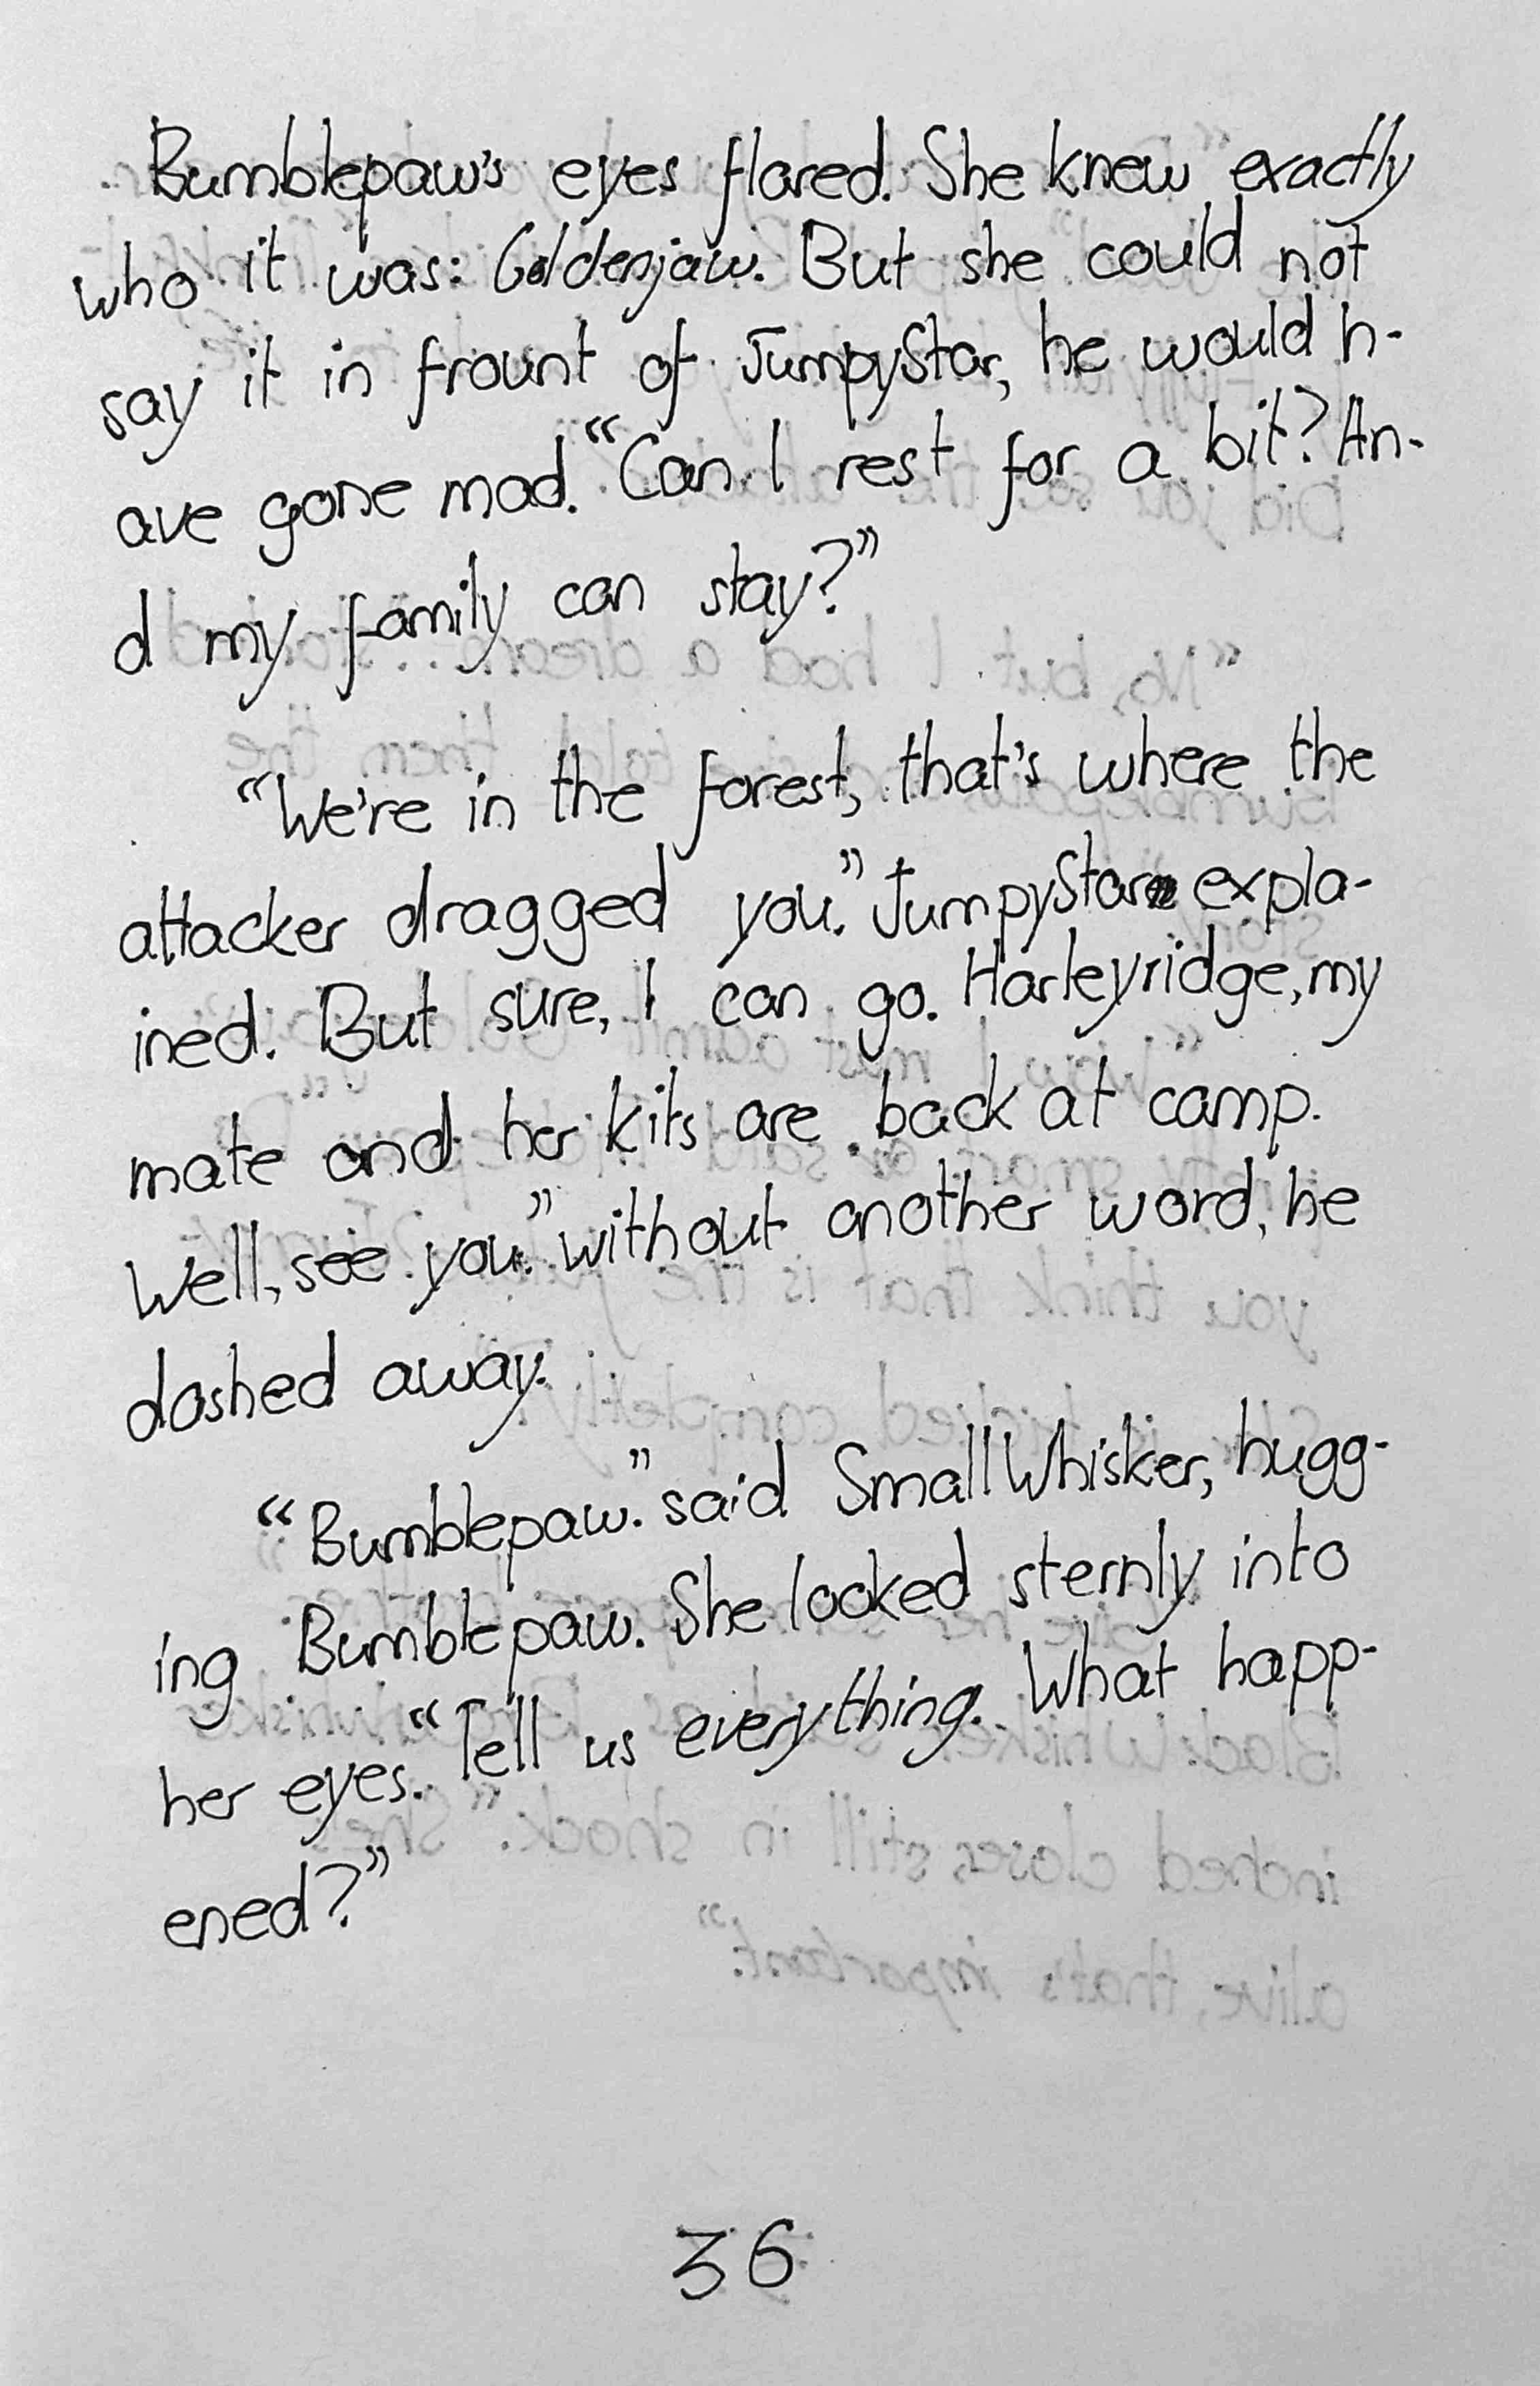 Bumblepaw's eyes flared. She knew exactly
who it was: Goldenjaw. But she could not
say it in frount of JumpyStar, he would h-
ave gone mad. “Can I rest for a bit? An-
d my family can stay?”
“We're in the forest, that's where the
attacker dragged you.” JumpyStar expla-
ined. But sure, I can go. Harleyridge, my
mate and her kits are back at camp.
Well, see you.” without another word, he
dashed away.
“Bumblepaw.” said SmallWhisker, hugg-
ing Bumblepaw. She looked sternly into
her eyes. “Tell us everything. What happ-
ened?”
36